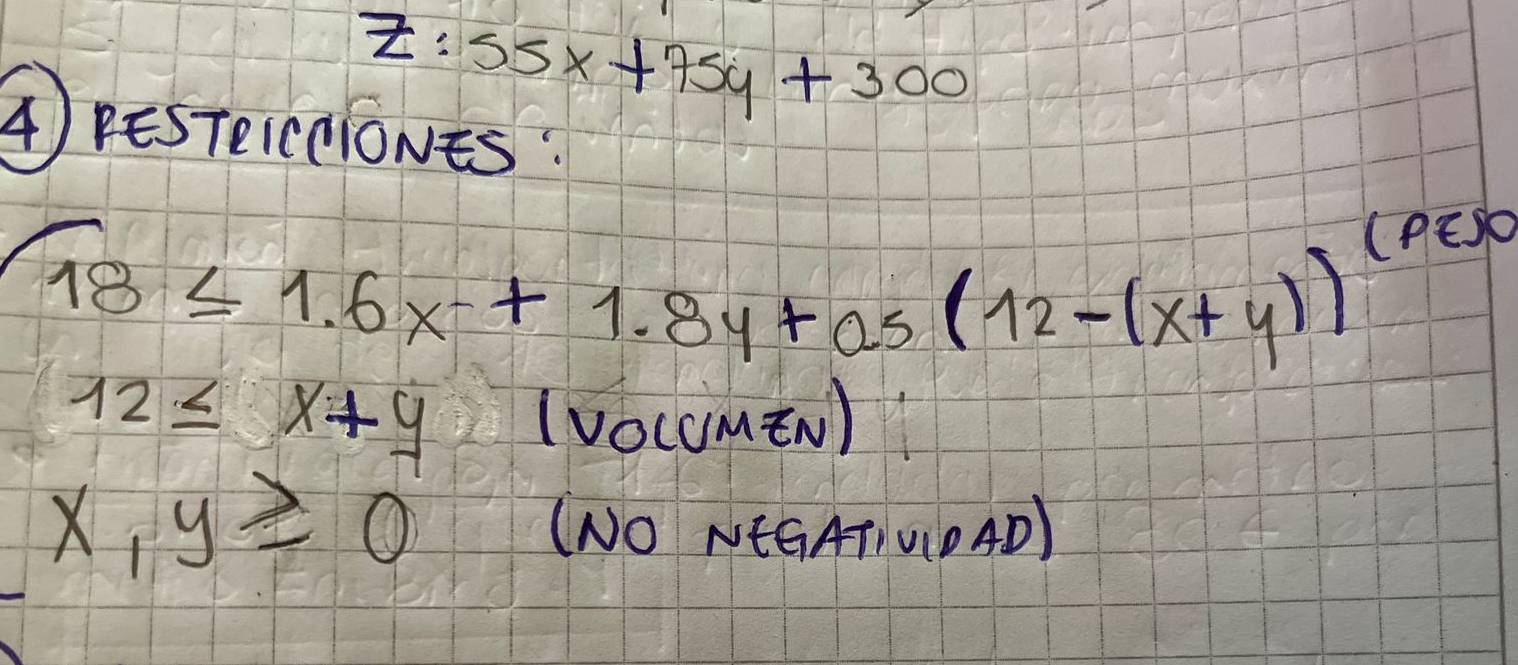 Z: 55x + 75y + 300
4) RESTRICCIONES:
18 ≤ 1.6x + 1.8y + 0.5 (12 - (x + y)) (PESO
12 ≤ x + y (VOLUMEN)
x, y ≥ 0 (NO NEGATIVIDAD)